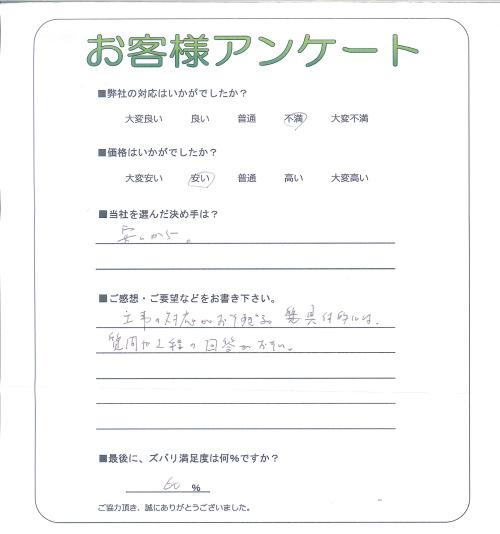 お客様アンケート
■弊社の対応はいかがでしたか？
大変良い 良い 普通 不満 大変不満
■価格はいかがでしたか？
大変安い 安い 普通 高い 大変高い
■当社を選んだ決め手は？
安いから。
■ご感想・ご要望などをお書き下さい。
工事の対応がおそすぎる。具体的には、
質問や工程の回答がおそい。
■最後に、ズバリ満足度は何％ですか？
60 ％
ご協力頂き、誠にありがとうございました。